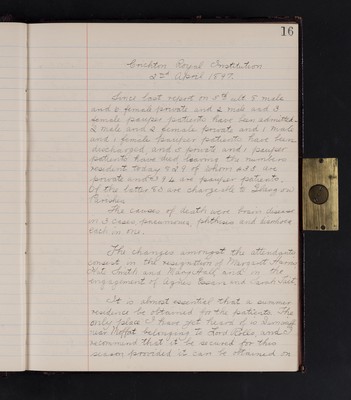 16
Crichton Royal Institution
22nd April 1897.
Since last report on 8th ult 5 male
and 8 female private and 2 male and 3
female pauper patients have been admitted.
2 male and 2 female private and 1 male
and 1 female pauper patients have been
discharged, and 5 private and 1 pauper
patients have died leaving the numbers
resident today of whom are
private and pauper patients.
Of the latter 53 are chargeable to Glasgow
Parishes
The causes of death were brain disease
in 3 cases, pneumonia, phthisis and
each in one.
The changes amongst the attendants
consist in the resignation of Margaret
Kate Smith and Mary Hall and in the
engagement of Agnes and Sarah
It is almost essential that a summer
residence be obtained for the patients. The
only place I have yet heard of is
near Moffat belonging to Lord and I
recommend that it be secured for this
season provided it can be obtained on